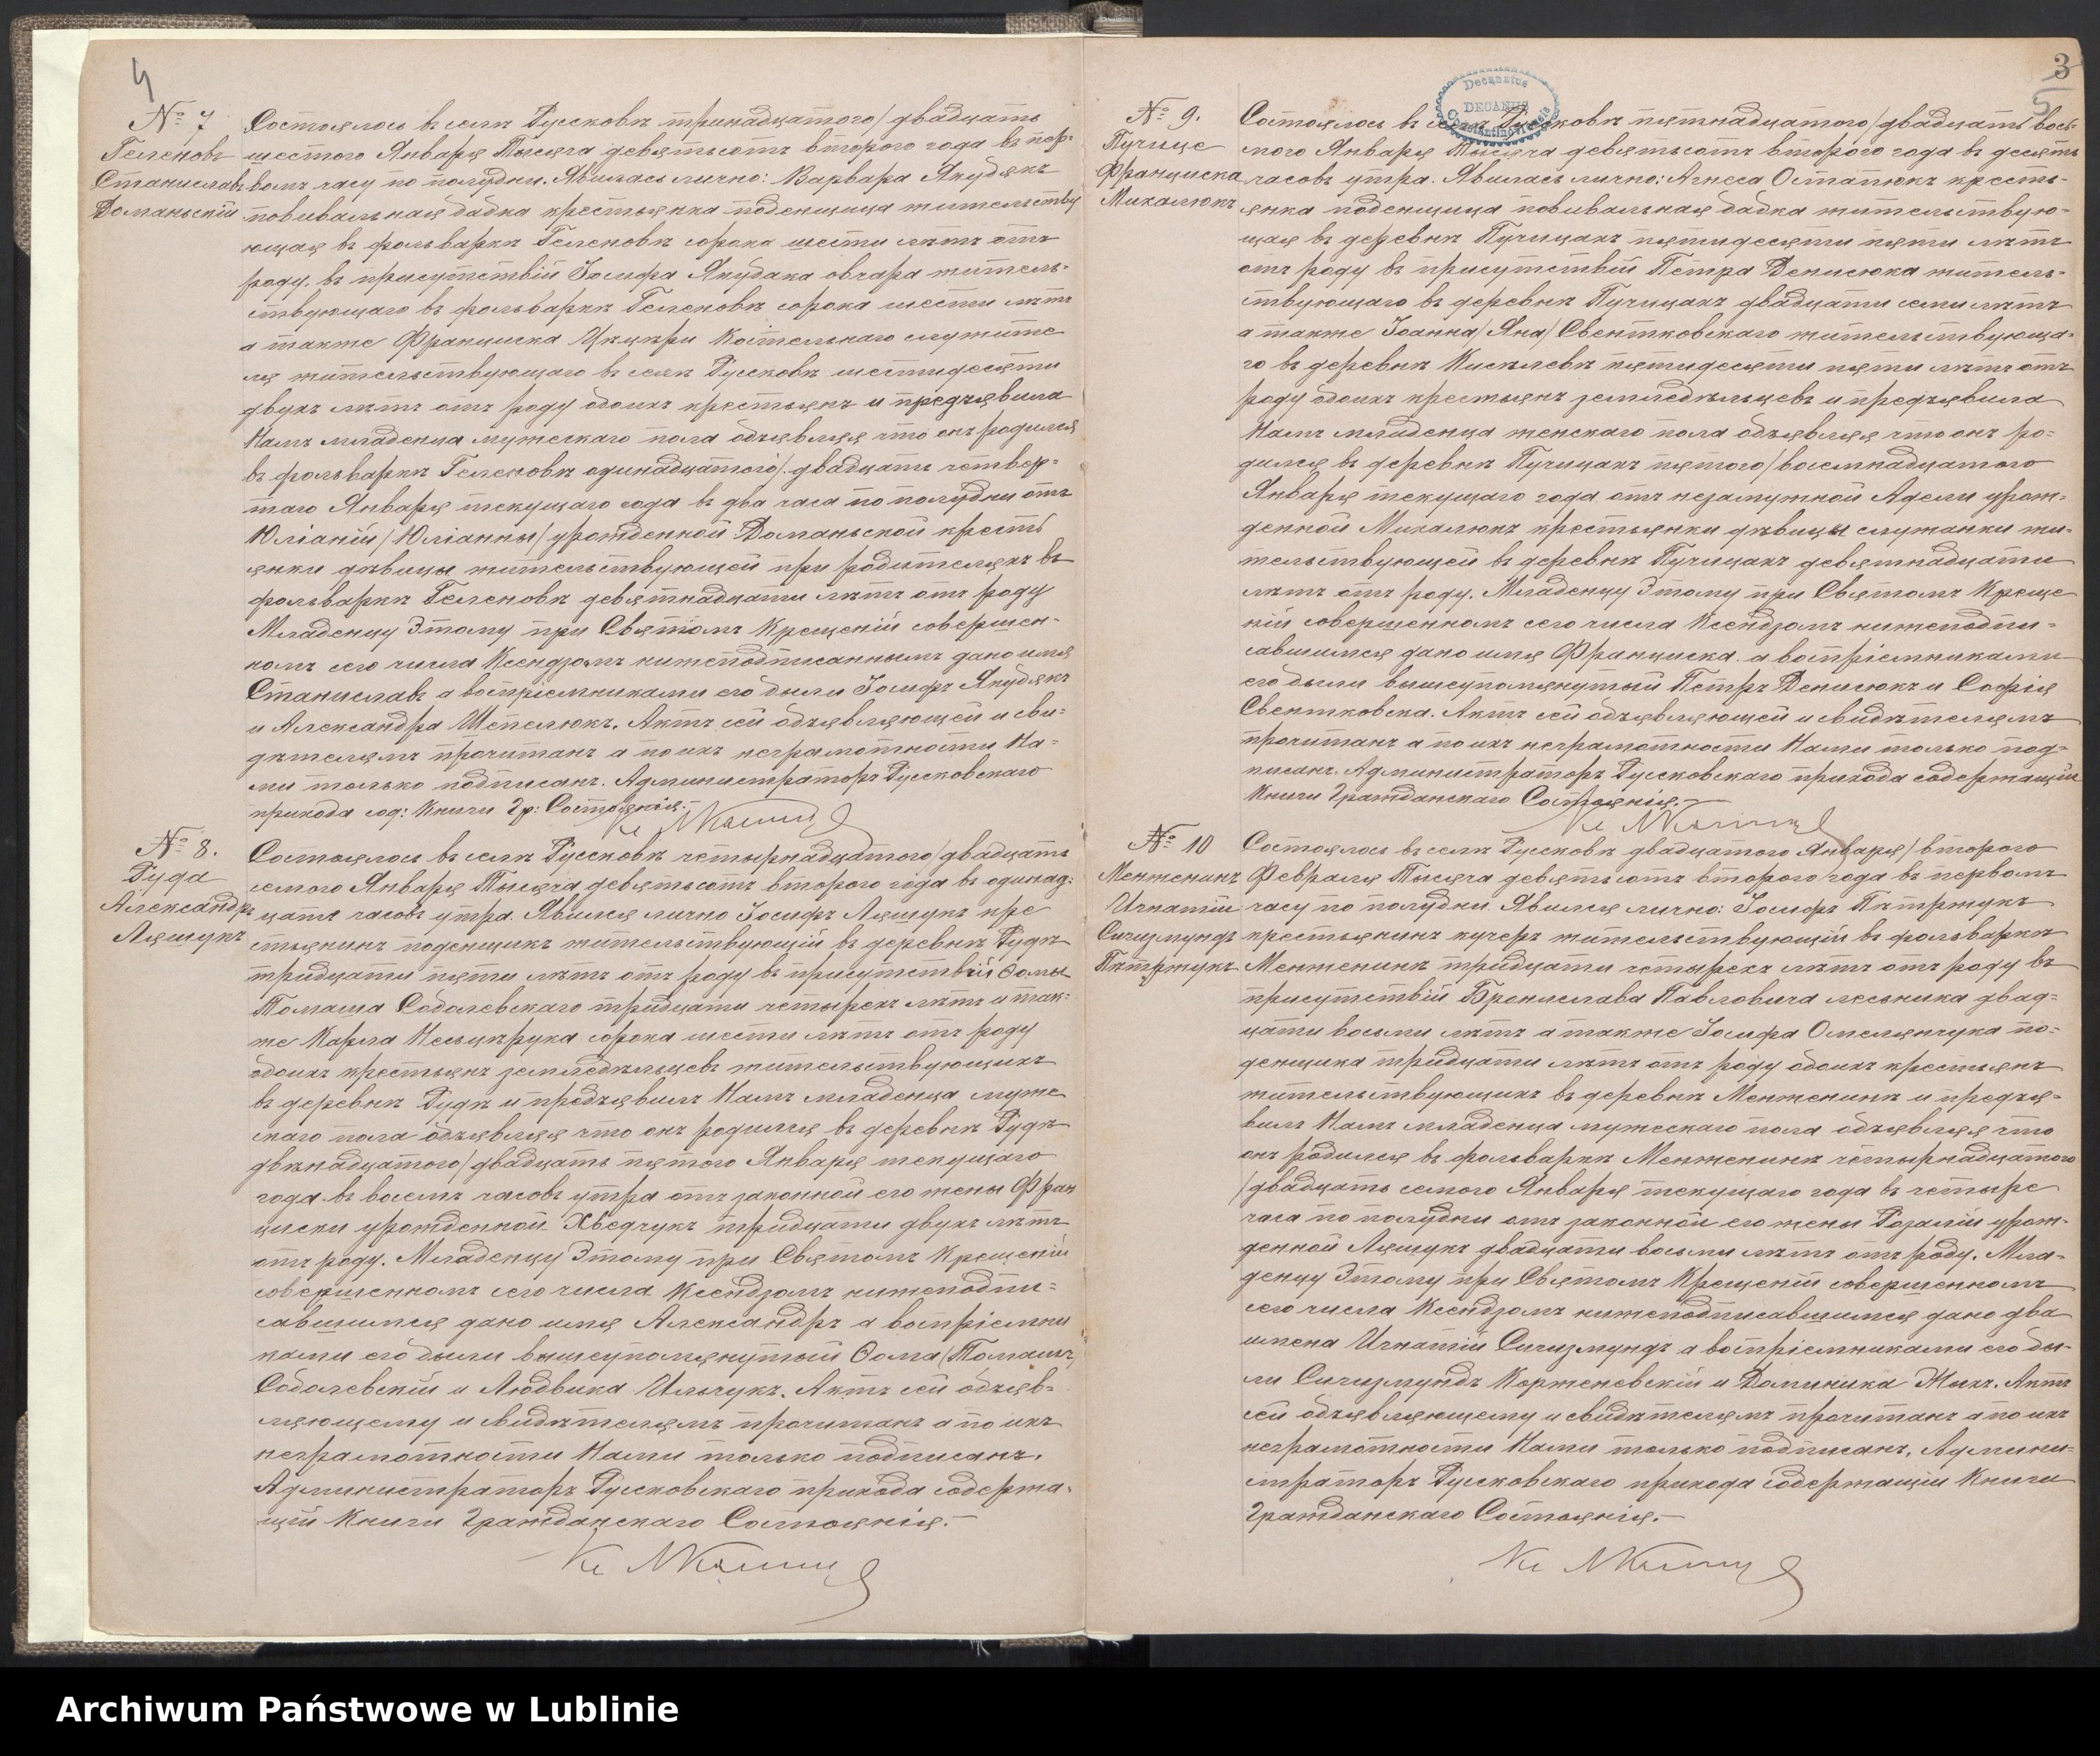 4
№ 7
Геленовъ
Станиславъ
Доманьскій
Состоялось въ селѣ Гусковѣ тринадцатого / двадцать
шестого Января Тысяча девятьсотъ второго года въ пер-
вомъ часу по полудни. Явилась лично: Варвара Якубякъ
повивальная бабка крестьянка поденщица жительству
ющая въ фольваркѣ Геленовѣ сорока шести лѣтъ отъ
роду, въ присутствіи Іосифа Якубяка овчара житель-
ствующаго въ фольваркѣ Геленовѣ сорока шести лѣтъ
а также Франциска Костельнаго служите
ля жительствующаго въ селѣ Гусковѣ шестидесяти
двухъ лѣтъ отъ роду обоихъ крестьянъ и предъявила
Намъ младенца мужескаго пола объявляя что онъ родился
въ фольваркѣ Геленовѣ одинадцатого / двадцать четвер-
таго Января текущаго года въ два часа по полудни отъ
Юліаніи / Юліанны / урожденной Доманьской кресть
янки дѣвицы жительствующей при родителяхъ въ
фольваркѣ Геленовѣ девятнадцати лѣтъ отъ роду
Младенцу Этому при Святомъ Крещеніи совершен-
номъ сего числа Ксендзомъ нижеподписаннымъ дано имя
Станиславъ а воспріемниками его были Іосифъ Якубякъ
и Александра Шепелюкъ. Актъ сей объявляющей и сви-
дѣтелямъ прочитанъ а по ихъ неграмотности На-
ми только подписанъ. Администраторъ Гусковскаго
прихода сод: Книги Гр: Состоянія.-
№ 8.
Гуда
Александръ
Лящукъ
Состоялось въ селѣ Гусковѣ четырнадцатого / двадцать
семого Января Тысяча девятьсотъ второго года въ одинад-
цать часовъ утра. Явился лично Іосифъ Лящукъ кре
стьянинъ поденщикъ жительствующій въ деревнѣ Гудѣ
тридцати пяти лѣтъ отъ роду въ присутствіи Ѳомы
Томаша Соболевскаго тридцати четырехъ лѣтъ и так-
же Карла сорока шести лѣтъ отъ роду
обоихъ крестьянъ земледѣльцевъ жительствующихъ
въ деревнѣ Гудѣ и предъявилъ Намъ младенца муже
скаго пола объявляя что онъ родился въ деревнѣ Гудѣ
двѣнадцатого / двадцать пятого Января текущаго
года въ восемь часовъ утра отъ законной его жены Фран
циски урожденной Хведчукъ тридцати двухъ лѣтъ
отъ роду. Младенцу Этому при Святомъ Крещеніи
совершенномъ сего числа Ксендзомъ нижеподпи-
савшимся дано имя Александръ а воспріемни
ками его были вышеупомянутый Ѳома / Томашъ
Соболевскій и Людвика Ильчукъ. Актъ сей объяв-
ляющему и свидѣтелямъ прочитанъ а по ихъ
неграмотности Нами только подписанъ.
Администраторъ Гусковскаго прихода содержа-
щій Книги Гражданскаго Состоянія.-
3
5
Decanatus
DECANUS
Constantinoviensis
№ 9.
Пучице
Франциска
Михалюкъ
Состоялось въ селѣ Гусковѣ пятнадцатого / двадцать вось-
мого Января Тысяча девятьсотъ второго года въ десять
часовъ утра. Явилась лично: Агнеса Остапюкъ кресть-
янка поденщица повивальная бабка жительствую-
щая въ деревнѣ Пучицахъ пятидесяти пяти лѣтъ
отъ роду въ присутствіи Петра Денисюка житель-
ствующаго въ деревнѣ Пучицахъ двадцати семи лѣтъ
а также Іоанна / Яна / Свентковскаго жительствующа-
го въ деревнѣ Киселевѣ пятидесяти пяти лѣтъ отъ
роду обоихъ крестьянъ земледѣльцевъ и предъявила
Намъ младенца женскаго пола объявляя что онъ ро-
дился въ деревнѣ Пучицахъ пятого / восемнадцатого
Января текущаго года отъ незамужной Адели урож-
денной Михалюкъ крестьянки дѣвицы служанки жи-
тельствующей въ деревнѣ Пучицахъ девятнадцати
лѣтъ отъ роду. Младенцу Этому при Святомъ Креще
ніи совершенномъ сего числа Ксендзомъ нижеподпи-
савшимся дано имя Франциска. а воспріемниками
его были вышеупомянутый Петръ Денисюкъ и Софія
Свентковска. Актъ сей объявляющей и свидѣтелямъ
прочитанъ а по ихъ неграмотности Нами только под-
писанъ. Администраторъ Гусковскаго прихода содержащій
Книги Гражданскаго Состоянія.-
№ 10
Менженинъ
Игнатій
Сигизмундъ
Пѣтржукъ
Состоялось въ селѣ Гусковѣ двадцатого Января / второго
Февраля Тысяча девятьсотъ второго года въ первомъ
часу по полудни Явился лично: Іосифъ Пѣтржукъ
крестьянинъ кучеръ жительствующій въ фольваркѣ
Менженинѣ тридцати четырехъ лѣтъ отъ роду въ
присутствіи Бронислава Павловича лесьника двад-
цати восьми лѣтъ а также Іосифа Омелянчука по-
денщика тридцати лѣтъ отъ роду обоихъ крестьянъ
жительствующихъ въ деревнѣ Менженинѣ и предъя-
вилъ Намъ младенца мужескаго пола объявляя что
онъ родился въ фольваркѣ Менженинѣ четырнадцатого
/ двадцать семого Января текущаго года въ четыре
часа по полудни отъ законной его жены Розаліи урож-
денной Лящукъ двадцати восьми лѣтъ отъ роду. Мла-
денцу Этому при Святомъ Крещеніи совершенномъ
сего числа Ксендзомъ нижеподписавшимся дано два
имена Игнатій Сигизмундъ а воспріемниками его бы-
ли Сигизмундъ Корженевскій и Доминика Жукъ. Актъ
сей объявляющему и свидѣтелямъ прочитанъ а по ихъ
неграмотности Нами только подписанъ. Админи-
страторъ Гусковскаго прихода содержащій Книги
Гражданскаго Состоянія.-
Archiwum Państwowe w Lublinie